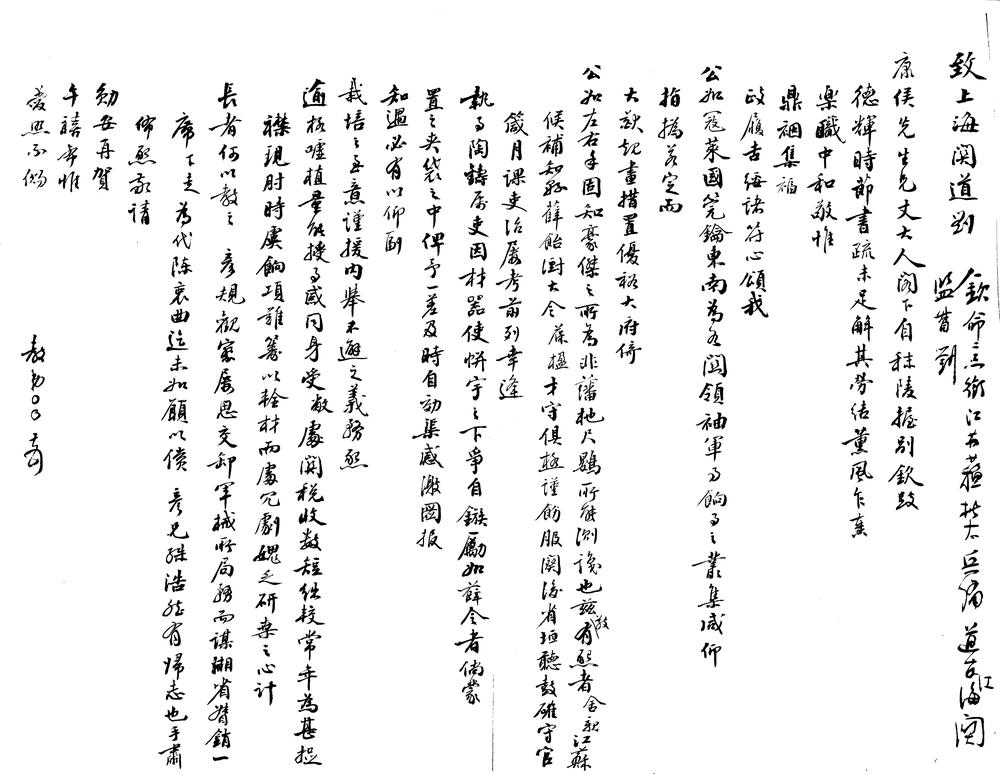 致上海関道劉
欽命二品銜江蘇蘇松太兵備道江海関
監督劉
康侯先生兄丈大人閣下自秣陵握別欽跂
德輝時節書疏未足解其勞结薰風乍蕉
樂職中和敬惟
鼎祻集福
政履吉绥諸符心頌我
公如冦萊國筦鑰東南為各関領袖軍事餉事之叢集咸仰
指撝若定而
大猷起畫措置優裕大府倚
公如左右手固知豪傑之所為非藩杝尺鷃所能測識也兹敬有懇者舍親江蘇
候補知縣薛飴澍大令葆楹才守俱極謹飭服闋後省垣聽鼓碓守官
箴月課吏治屢考前列幸逢
執事陶鑄屬吏因材器使帡宇之下爭自鏃勵如薛令者倘蒙
置之夹袋之中俾予一差及時自効渠感激圖报
知遇必有以仰副
栽培之至意謹援内舉不避之義務懇
逾格嘘植量能授事感同身受敝處関税收数短绌較常年為甚捉
襟現肘時虞餉項難籌以輇材而處冗劇媿乏研桑之心計
長者何以教之 彦規觀察屡思交卸軍械所局務而谋湖省督銷一
席下走為代陳衷曲迄未如願以償 彦兄殊浩然有帰志也手肅
佈懇敬請
勛安再賀
午禧希惟
愛照不備